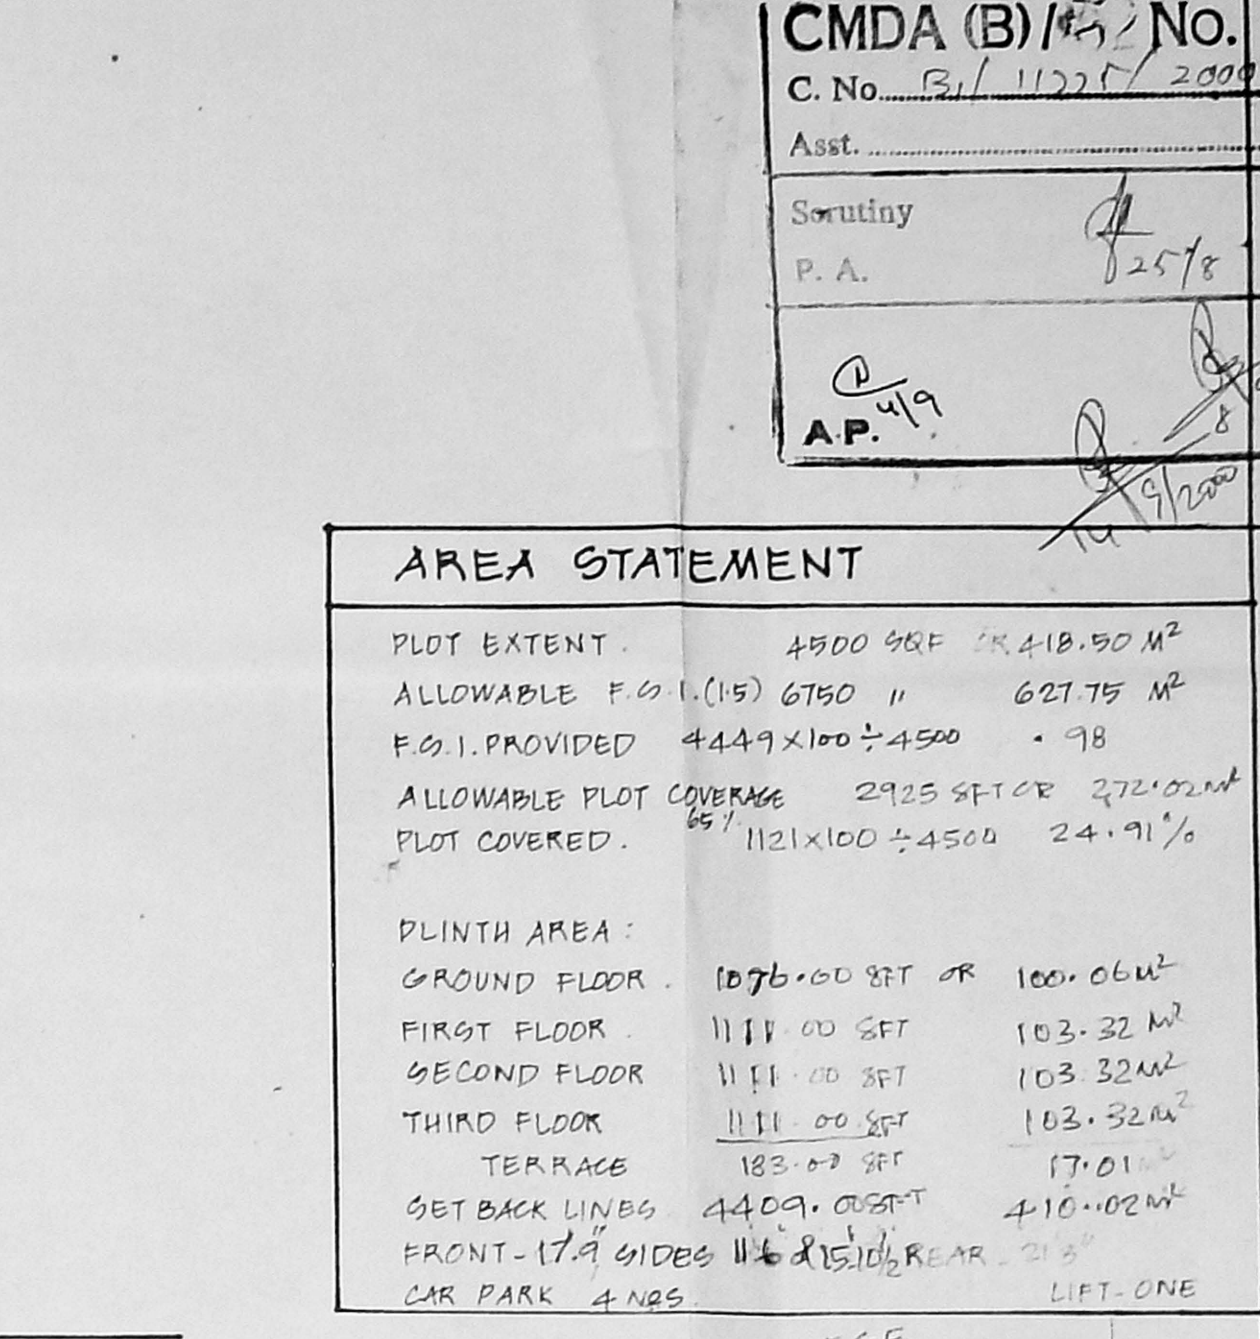 CMDA (B)/ No.
C. No. B1/ 11225/ 2000
Asst.
Scrutiny
25/8
P. A.
4/9
A.P.
8
14/9/2000
AREA STATEMENT
PLOT EXTENT. 4500 SQF OR 418.50 M²
ALLOWABLE F.S.I.(1.5) 6750 " 627.75 M²
F.S.I. PROVIDED 4449×100÷4500 .98
ALLOWABLE PLOT COVERAGE 2925 SFT OR 272.02 M²
65%
PLOT COVERED. 1121×100÷4500 24.91%
PLINTH AREA:
GROUND FLOOR. 1076.00 SFT OR 100.06 M²
FIRST FLOOR. 1111.00 SFT 103.32 M²
SECOND FLOOR 1111.00 SFT 103.32 M²
THIRD FLOOR 1111.00 SFT 103.32 M²
TERRACE 183.00 SFT 17.01 M²
SET BACK LINES 4409.00 SFT 410.02 M²
FRONT-17'.9" SIDES 11'6 & 15'.10½ REAR - 21'3"
CAR PARK 4 NOS. LIFT-ONE